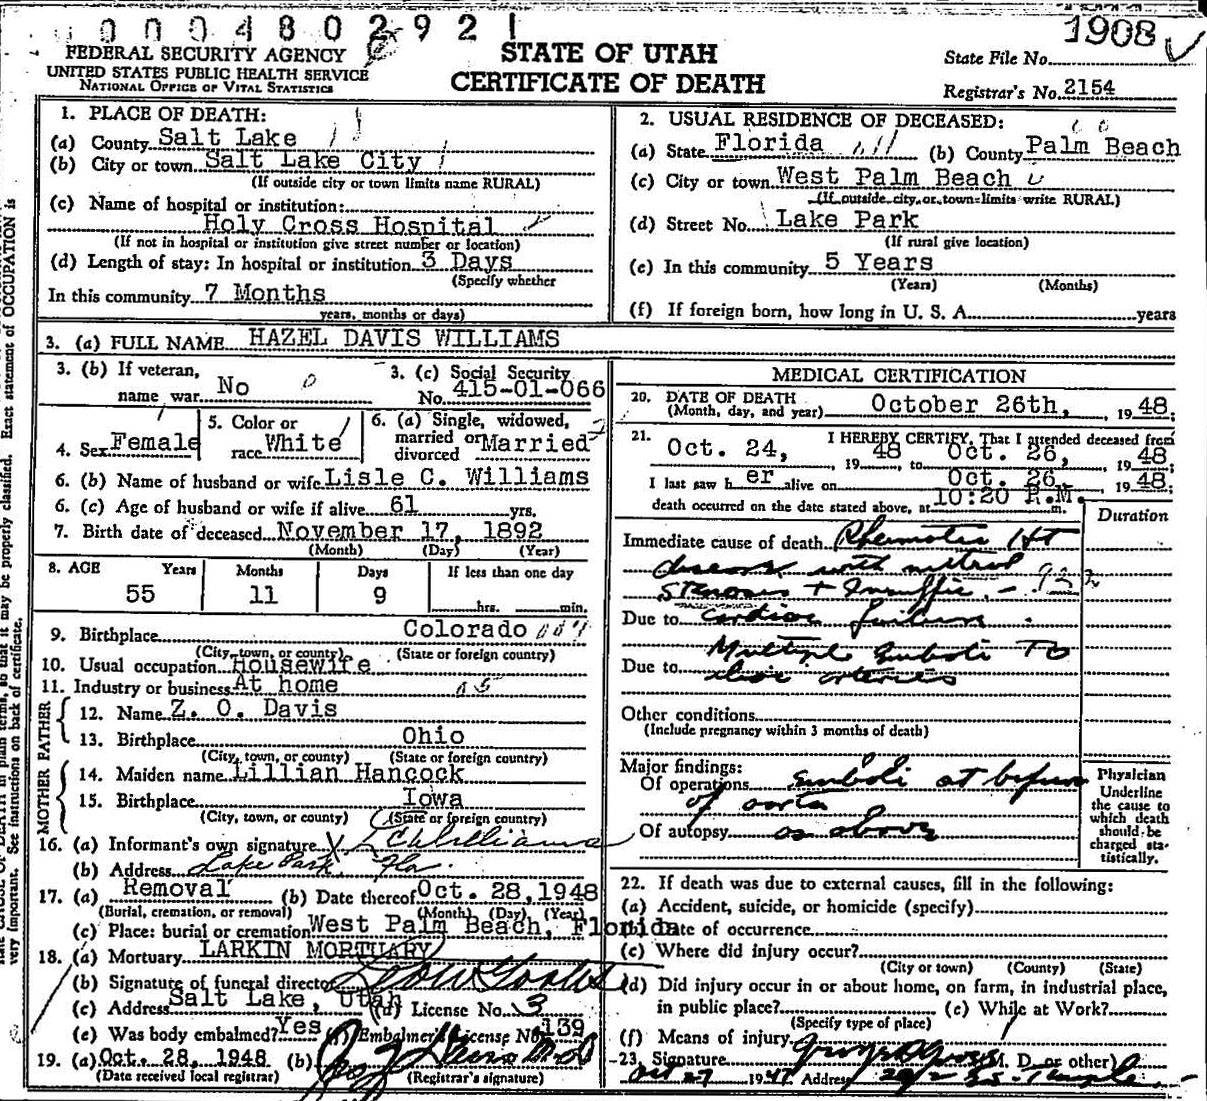 0 0 0 4 8 0 2 9 2 1
1908
FEDERAL SECURITY AGENCY
UNITED STATES PUBLIC HEALTH SERVICE
NATIONAL OFFICE OF VITAL STATISTICS
STATE OF UTAH
CERTIFICATE OF DEATH
State File No.
Registrar's No. 2154
1. PLACE OF DEATH:
(a) County Salt Lake
(b) City or town Salt Lake City
(If outside city or town limits name RURAL)
(c) Name of hospital or institution:
Holy Cross Hospital
(If not in hospital or institution give street number or location)
(d) Length of stay: In hospital or institution 3 Days
(Specify whether
In this community 7 Months
years, months or days)
2. USUAL RESIDENCE OF DECEASED:
(a) State Florida (b) County Palm Beach
(c) City or town West Palm Beach
(If outside city or town limits write RURAL)
(d) Street No. Lake Park
(If rural give location)
(e) In this community 5 Years
(Years) (Months)
(f) If foreign born, how long in U. S. A. years
3. (a) FULL NAME HAZEL DAVIS WILLIAMS
3. (b) If veteran,
name war No
3. (c) Social Security
No. 415-01-066
4. Sex Female
5. Color or
race White
6. (a) Single, widowed,
married or
divorced Married
6. (b) Name of husband or wife Lisle C. Williams
6. (c) Age of husband or wife if alive 61 yrs.
7. Birth date of deceased November 17, 1892
(Month) (Day) (Year)
8. AGE Years Months Days If less than one day
55 11 9 hrs. min.
9. Birthplace Colorado
(City, town, or county) (State or foreign country)
10. Usual occupation Housewife
11. Industry or business At home
FATHER
12. Name Z. O. Davis
13. Birthplace Ohio
(City, town, or county) (State or foreign country)
MOTHER
14. Maiden name Lillian Hancock
15. Birthplace Iowa
(City, town, or county) (State or foreign country)
16. (a) Informant's own signature X L C Williams
(b) Address Lake Park, Fla.
17. (a) Removal (b) Date thereof Oct. 28, 1948
(Burial, cremation, or removal) (Month) (Day) (Year)
(c) Place: burial or cremation West Palm Beach, Florida
18. (a) Mortuary LARKIN MORTUARY
(b) Signature of funeral director
(c) Address Salt Lake, Utah (d) License No. 3
(e) Was body embalmed? Yes (f) Embalmer's License No. 139
19. (a) Oct. 28, 1948 (b)
(Date received local registrar) (Registrar's signature)
MEDICAL CERTIFICATION
20. DATE OF DEATH
(Month, day, and year) October 26th, , 1948;
21. I HEREBY CERTIFY, That I attended deceased from
Oct. 24, , 1948 , to Oct. 26, , 1948;
I last saw h er alive on Oct. 26, , 1948;
death occurred on the date stated above, at 10:20 P.M. m.
Duration
Immediate cause of death Rheumatic Ht
disease with mitral
stenosis + Insuffic. -
Due to cardiac failure
Multiple Emboli To
Due to iliac arteries
Other conditions
(Include pregnancy within 3 months of death)
Major findings:
Of operations emboli at bifurc
of aorta
Of autopsy as above
Physician
Underline
the cause to
which death
should be
charged sta-
tistically.
22. If death was due to external causes, fill in the following:
(a) Accident, suicide, or homicide (specify)
(b) Date of occurrence
(c) Where did injury occur?
(City or town) (County) (State)
(d) Did injury occur in or about home, on farm, in industrial place,
in public place? (e) While at Work?
(Specify type of place)
(f) Means of injury
23. Signature (M. D. or other)
Oct 27 1947 Address So. Temple
Exact statement of OCCUPATION is
so that it may be properly classified.
very important. See instructions on back of certificate.